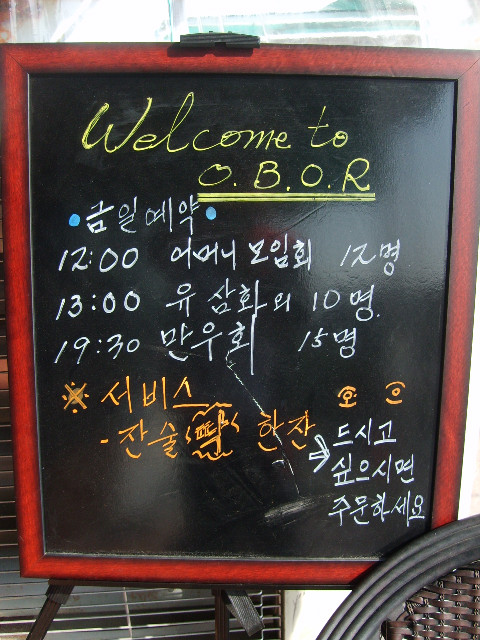 Welcome to
O.B.O.R
금일예약
12:00 어머니 모임회 12명
13:00 유삼화 외 10명.
19:30 만우회 15명
※ 서비스
- 잔술 딱 한잔
드시고
싶으시면
주문하세요